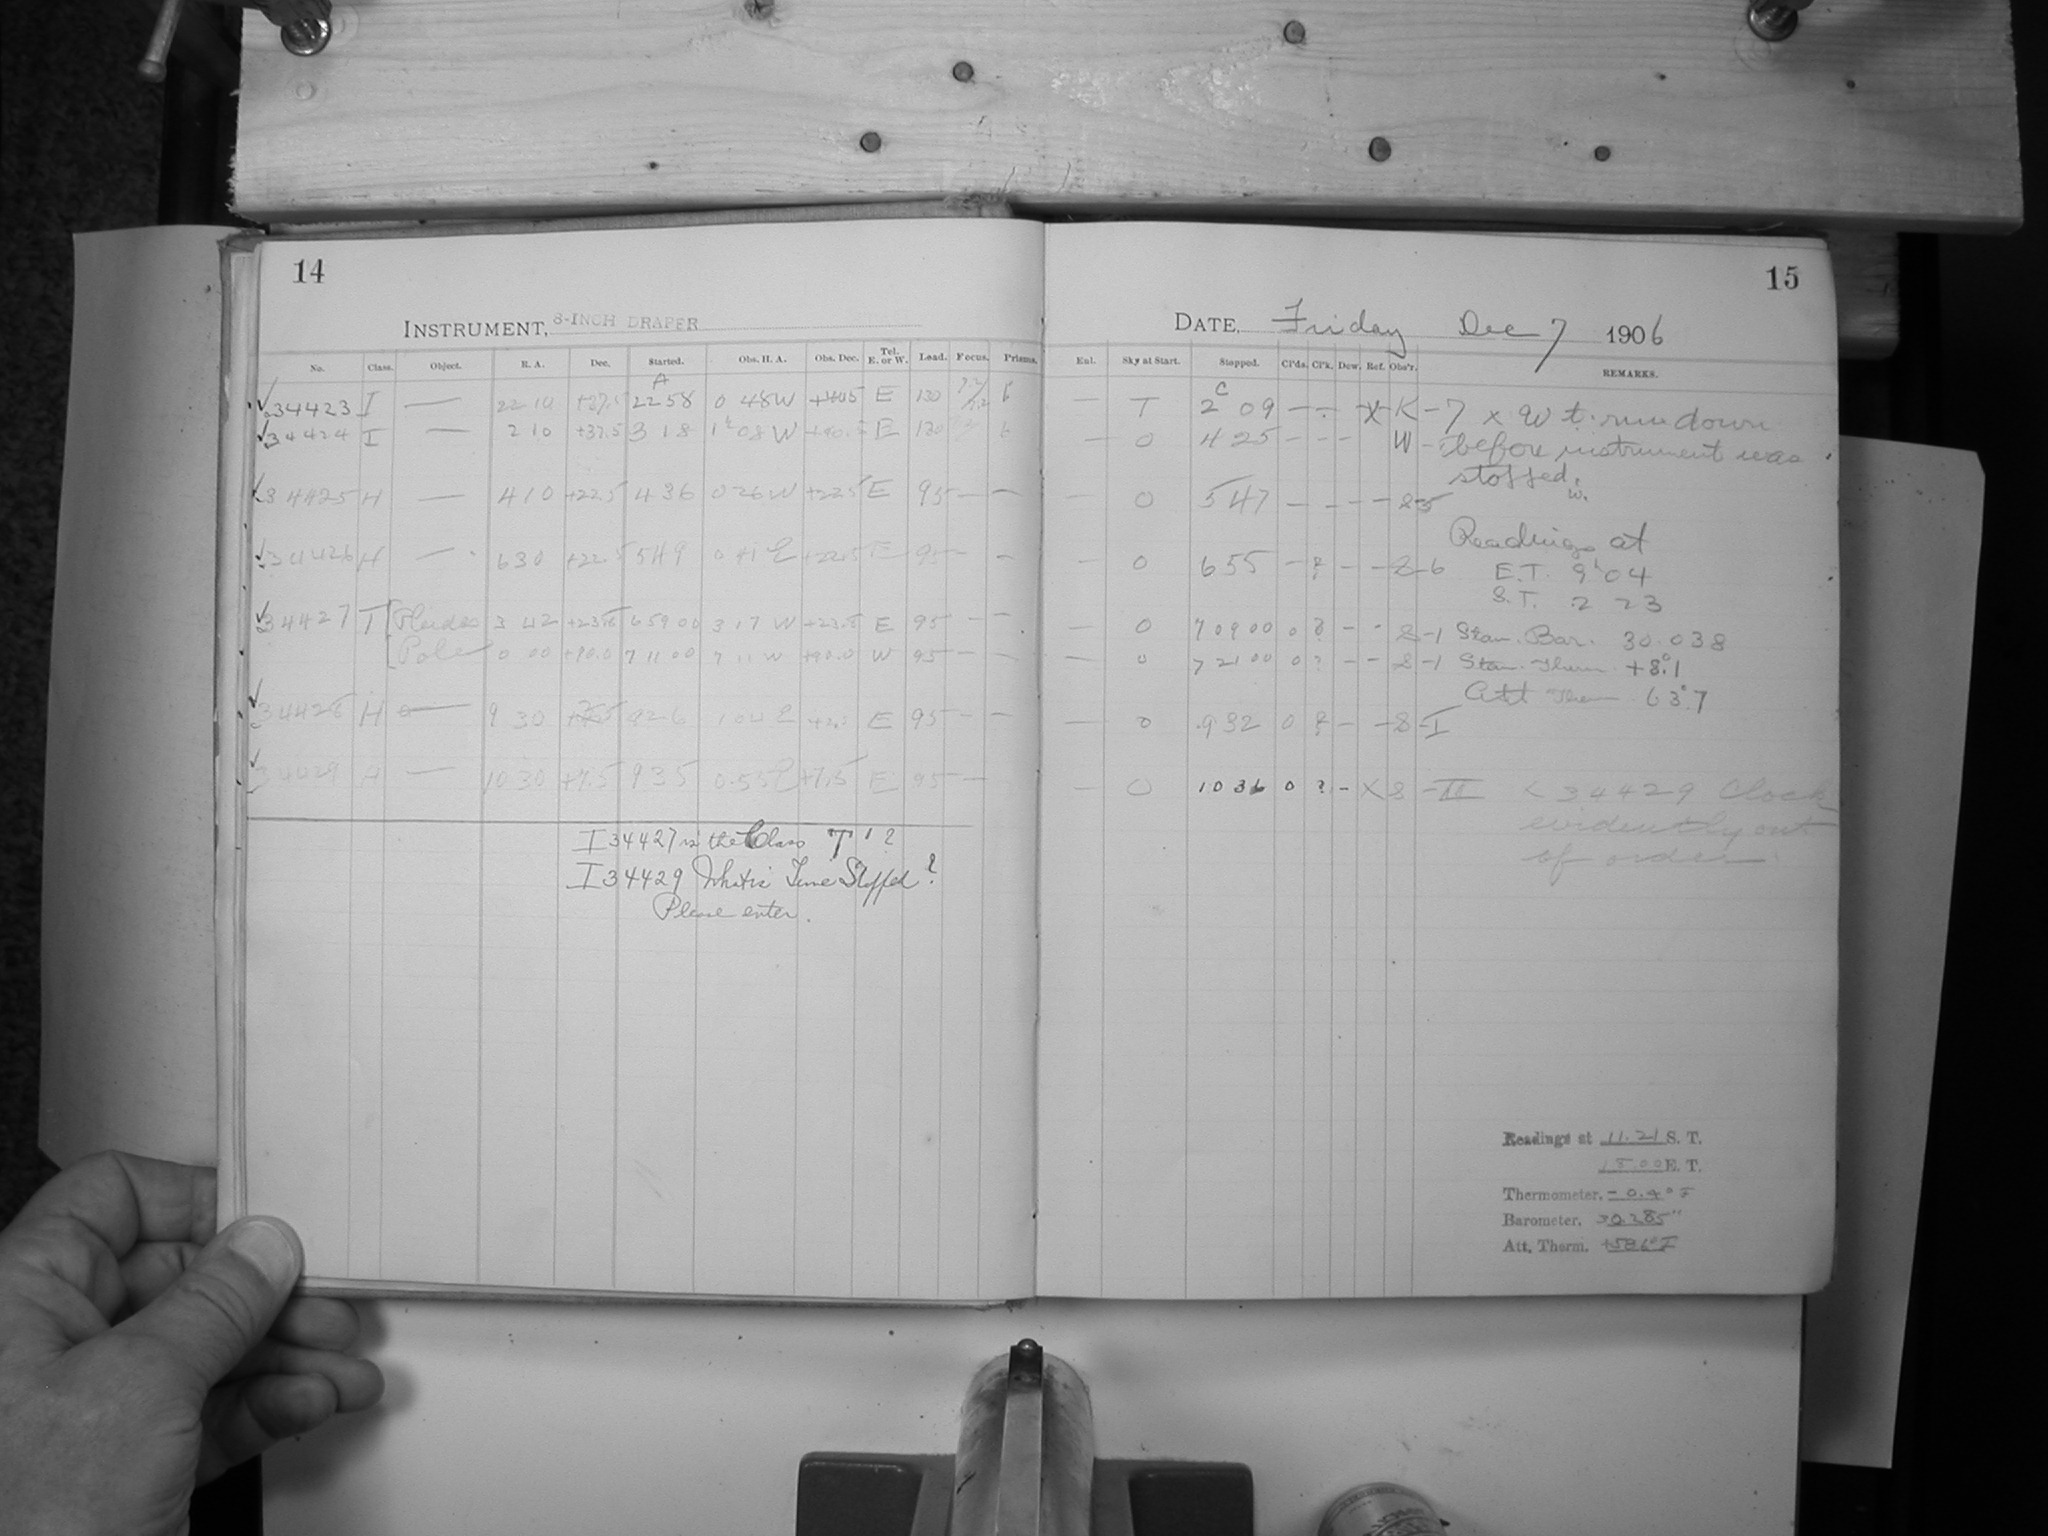 14
INSTRUMENT, 8-INCH DRAPER
No. Class. Object. R. A. Dec. Started. Obs. H. A. Obs. Dec. Tel. E. or W. Lead. Focus. Prisms.
A
34423 I — 22 10 +37.5 22 58 0 48 W E 130 6
34424 I — 2 10 +37.5 3 18 1 08 W E 130 6
34425 H — 4 10 +22.5 4 36 0 26 W +22.5 E 95 — —
34426 H — 6 30 +22.5 5 49 0 41 E +22.5 E 95 — —
34427 T Pleiades 3 42 +23.8 6 59 00 3 17 W +23.8 E 95 — —
Pole 0 00 +90.0 7 11 00 7 11 W +90.0 W 95 — —
34428 H — 9 30 9 26 1 04 E E 95 — —
34429 H — 10 30 +7.5 9 35 0.55 E +7.5 E 95 — —
I 34427 is the Class "T"?
I 34429 What is Time Stopped?
Please enter.
15
DATE, Friday Dec 7 1906
Eul. Sky at Start. Stopped. Cl'ds. Cl'k. Dew. Ref. Obs'r. REMARKS.
C
T 2 09 — — X K — 7 x Wt. run down
— 0 4 25 — — — W — before instrument was
stopped.
W.
— 0 5 47 — — — — S-5
Readings at
— 0 6 55 — ? — — S-6
E.T. 9h 04
S.T. 2 23
— 0 7 09 00 0 ? — — S-1 Stan. Bar. 30.038
— 0 7 21 00 0 ? — — S-1 Stan. Therm +8°.1
Att Ther 63°.7
— 0 9 32 0 ? — — S-I
— 0 10 36 0 ? — X S-II < 34429 Clock
evidently out
of order.
Readings at 11.21 S. T.
18.00 E. T.
Thermometer, -0.4° F
Barometer, 30.285"
Att. Therm. +58.6° F